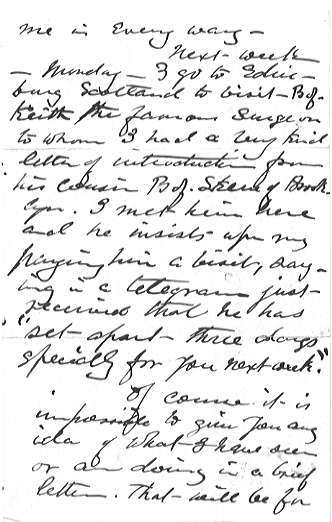 me in every way -
Next - week
- Monday - I go to Edin-
burg Scotland to visit - Prof.
Keith the famous Surgeon
to whom I had a very kind
letter of introduction from
his cousin Prof. Skene of Brook-
lyn. I met him here
and he insists upon my
paying him a visit, say-
ing in a telegram just -
received that he has
"set - apart - three days
specially for you next week."
Of course it is
impossible to give you any
idea of what I have seen
or am doing in a brief
letter. That - will be for